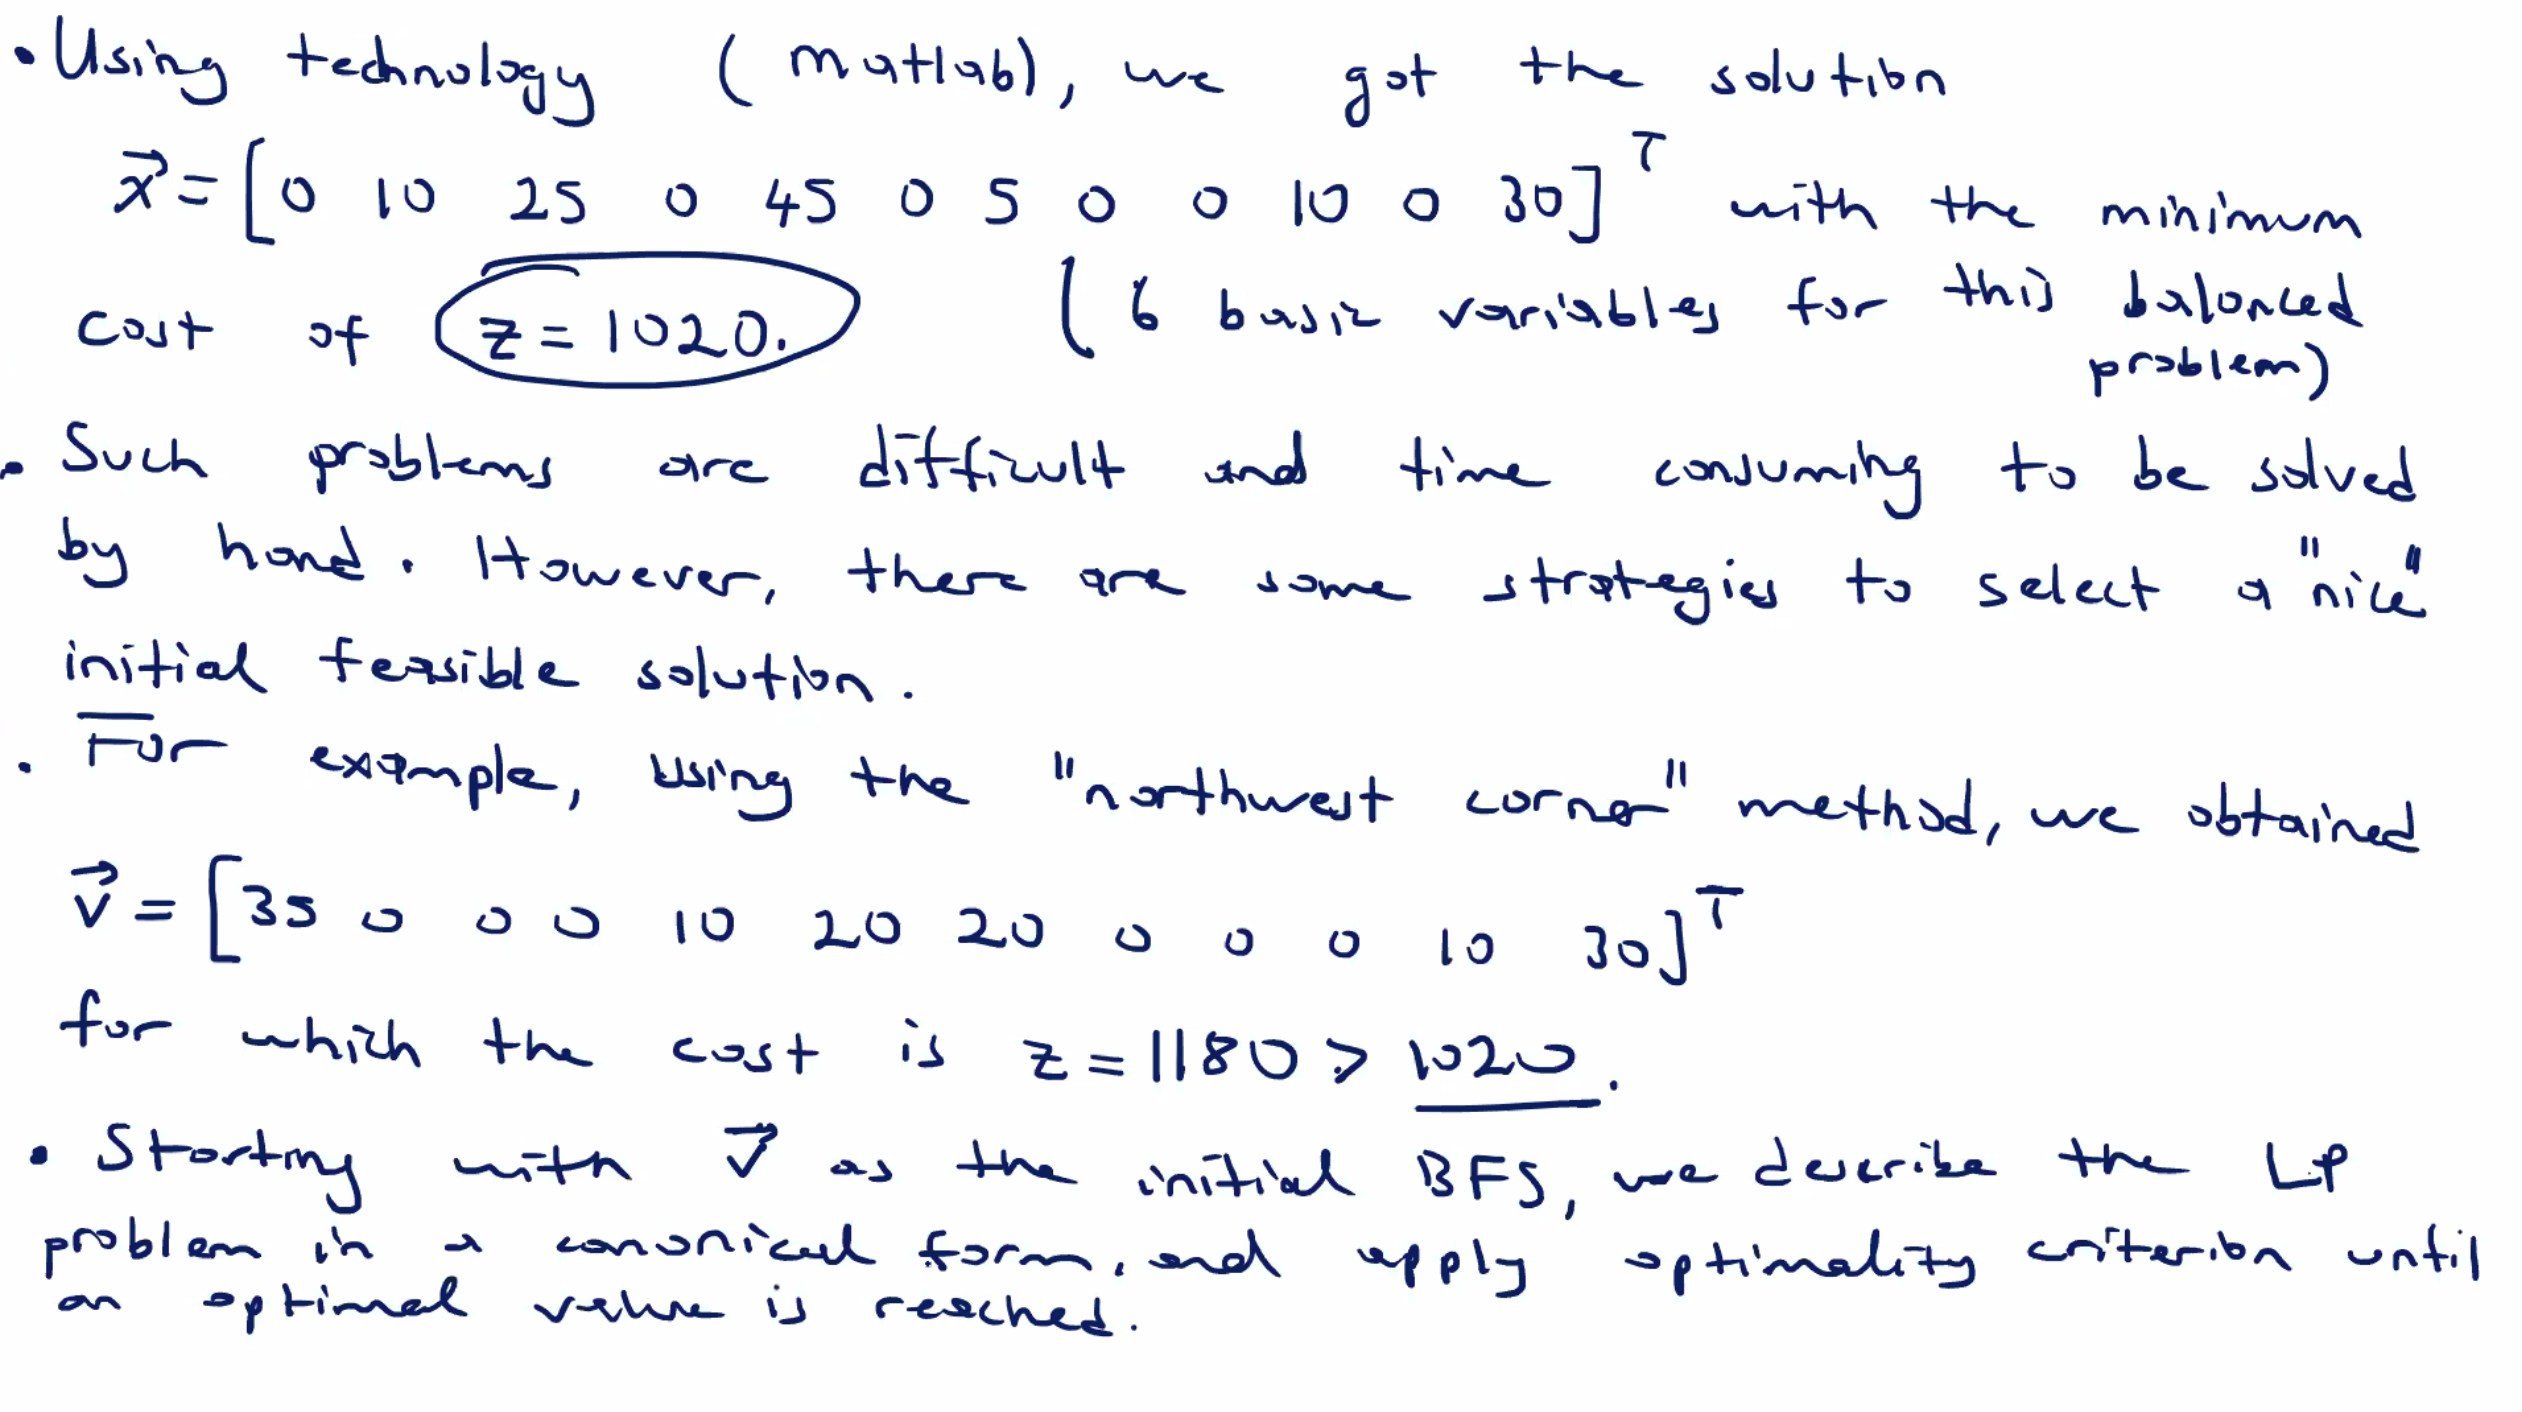 • Using technology (matlab), we got the solution
x⃗ = [0 10 25 0 45 0 5 0 0 10 0 30]ᵀ with the minimum
cost of z = 1020. (6 basic variables for this balanced
problem)
• Such problems are difficult and time consuming to be solved
by hand. However, there are some strategies to select a "nice"
initial feasible solution.
• For example, using the "northwest corner" method, we obtained
v⃗ = [35 0 0 0 10 20 20 0 0 0 10 30]ᵀ
for which the cost is z = 1180 > 1020.
• Starting with v⃗ as the initial BFS, we describe the LP
problem in a canonical form, and apply optimality criterion until
an optimal value is reached.